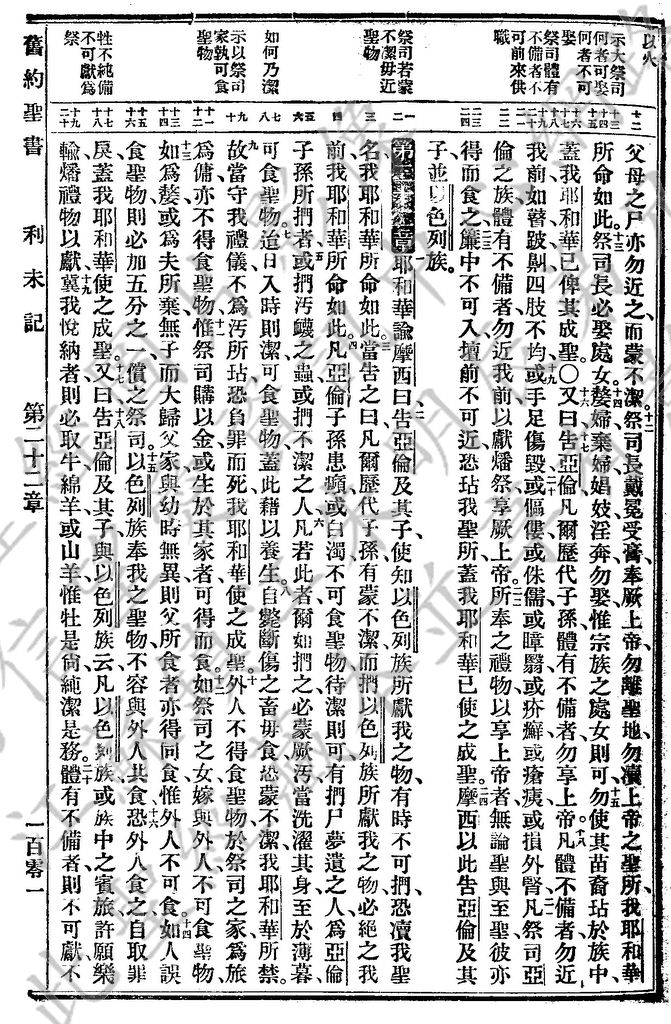 以火
示大祭司
何者可娶
何者不可
娶
祭司體有
不備者不
可前來供
職
祭司若蒙
不潔毋近
聖物
如何乃潔
示以祭司
家孰可食
聖物
牲不純備
不可獻爲
祭
父母之尸亦勿近之而蒙不潔祭司長戴冕受膏奉厥上帝勿離聖地勿瀆上帝之聖所我耶和華
所命如此祭司長必娶處女嫠婦棄婦娼妓淫奔勿娶惟宗族之處女則可勿使其苗裔玷於族中
蓋我耶和華已俾其成聖〇又曰告亞倫凡爾歷代子孫體有不備者勿享上帝凡體不備者勿近
我前如瞽跛劓四肢不均或手足傷毀或傴僂或侏儒或瞕翳或疥癬或瘡痍或損外腎凡祭司亞
倫之族體有不備者勿近我前以獻燔祭享厥上帝所奉之禮物以享上帝者無論聖與至聖彼亦
得而食之簾中不可入壇前不可近恐玷我聖所蓋我耶和華已使之成聖摩西以此告亞倫及其
子並以色列族
第二十二章耶和華諭摩西曰告亞倫及其子使知以色列族所獻我之物有時不可捫恐瀆我聖
名我耶和華所命如此當告之曰凡爾歷代子孫有蒙不潔而捫以色列族所獻我之物必絕之我
前我耶和華所命如此凡亞倫子孫患癩或白濁不可食聖物待潔則可有捫尸夢遺之人爲亞倫
子孫所捫者或捫汚衊之蟲或捫不潔之人凡若此者爾如捫之必蒙厥汚當洗濯其身至於薄暮
可食聖物迨日入時則潔可食聖物蓋此藉以養生自斃斷傷之畜毋食恐蒙不潔我耶和華所禁
故當守我禮儀不爲汚所玷恐負罪而死我耶和華使之成聖外人不得食聖物於祭司之家爲旅
爲傭亦不得食聖物惟祭司購以金或生於其家者可得而食如祭司之女嫁與外人不可食聖物
如爲嫠或爲夫所棄無子而大歸父家與幼時無異則父所食者亦得同食惟外人不可食如人誤
食聖物則必加五分之一償之祭司以色列族奉我之聖物不容與外人共食恐外人食之自取罪
戾蓋我耶和華使之成聖又曰告亞倫及其子與以色列族云凡以色列族或族中之賓旅許願樂
輸燔禮物以獻冀我悅納者則必取牛綿羊或山羊惟牡是尙純潔是務體有不備者則不可獻不
舊約聖書 利未記 第二十二章 一百零一